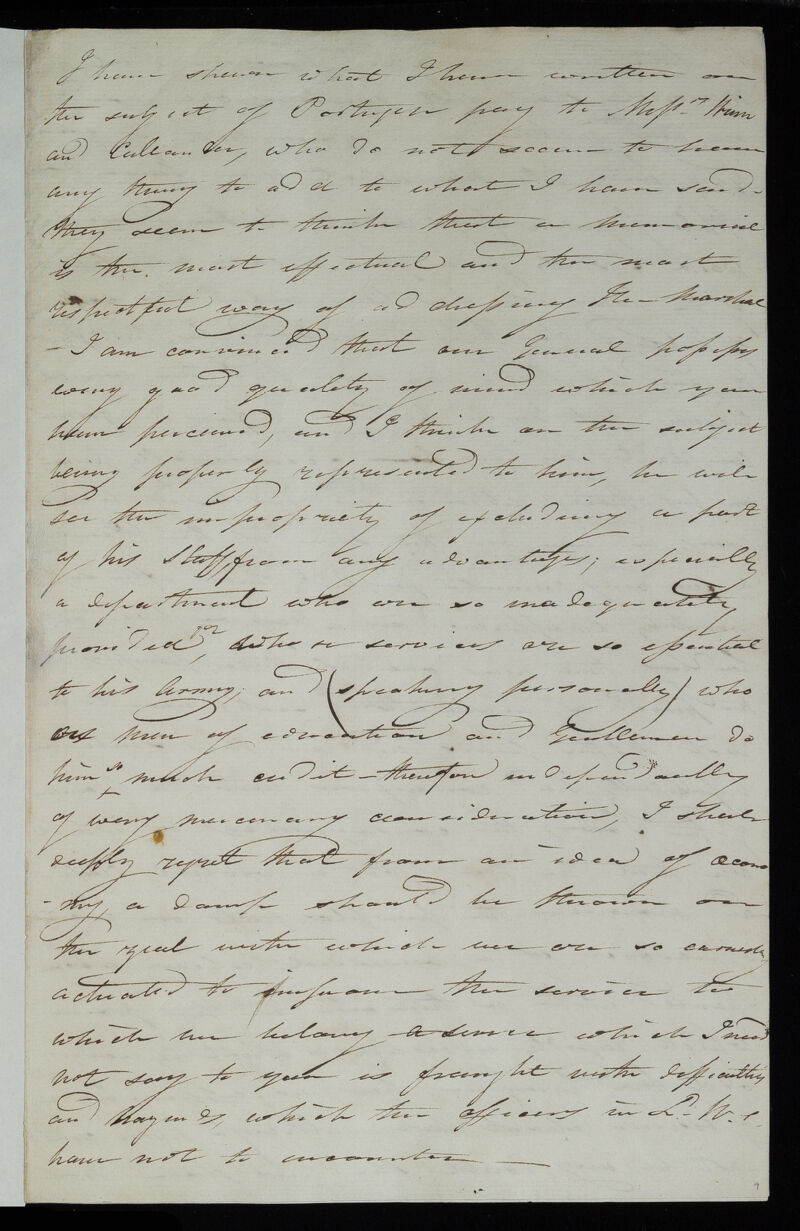 I have shewn what I have written on
the subject of Portuguese pay to Messrs
and Callander, who do not seem to have
any thing to add to what I have said.
they seem to think that a memorial
is the most effectual and the most
respectful way of addressing the Marshal
- I am convinced that our General possess
every good quality of mind which you
have perceived, and I think on the subject
being properly represented to him, he will
see the impropriety of excluding a part
of his Staff from any advantages; especially
a department who are so inadequately
provided for, whose services are so essential
to his Army; and (speaking personally) who
as men of education and Gentlemen do
him so much credit - therefore independantly
of every mercenary consideration, I shall
deeply regret that from an idea of econo
- my, a damp should be thrown on
the zeal with which we are so earnestly
actuated to improve the service to
which we belong a service which I need
not say to you is fraught with difficulties
and which the officers in Ld. W.s.
have not to encounter —